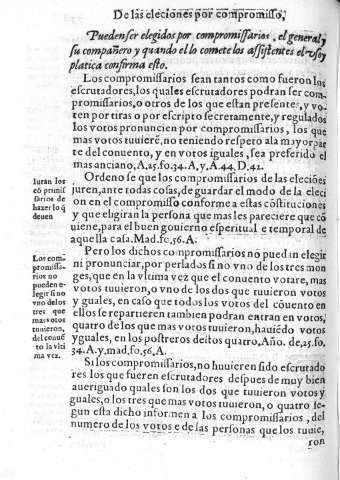 De las eleciones por compromisso,
Pueden ser elegidos por compromissarios, el general, y
su compañero y quando el lo comete los assistentes el uso y
platica confirma esto.
Los compromissarios sean tantos como fueron los
escrutadores, los quales escrutadores podran ser com-
promissarios, o otros de los que estan presentes, y vo-
ten por tiras o por escripto secretamente, y regulados
los votos pronuncien por compromissarios, los que
mas votos tuuierē, no teniendo respeto ala mayor par
te del conuento, y en votos iguales, sea preferido el
mas anciano, A, 25. fo. 34. A, y, A. 44. D. 42.
Ordeno se que los compromissarios de las eleciões
juren, ante todas cosas, de guardar el modo de la eleci
on en el compromisso conforme a estas cõstituciones
y que eligiran la persona que mas les pareciere que cõ
uiene, para el buen gouierno espiritual e temporal de
aquella casa. Mad. fo. 56. A.
Iuran los
cõ promis
sarios de
hazer lo q̃
deuen
Pero los dichos compromissarios no puedan elegir
ni pronunciar, por perlados si no vno de los tres mon
ges, que en la vltima vez que el conuento votare, mas
votos tuuieron, o vno de los dos que tuuieron votos
yguales, en caso que todos los votos del cõuento en
ellos se repartieren tambien podran entrar en votos,
quatro de los que mas votos tuuieron, hauiẽdo votos
yguales, en los postreros destos quatro, Año. de, 25. fo.
34. A. y, mad, fo, 56, A.
Los com-
promissa-
rios no
pueden e-
legir si no
vno de los
tres que
mas votos
tuuieron,
del conuẽ
to la vlti
ma vez.
Si los compromissarios, no huuieren sido escrutado
res los que fueren escrutadores despues de muy bien
aueriguado quales son los dos que tuuieron votos y
guales, o los tres que mas votos tuuieron, o quatro se-
gun esta dicho informen a los compromissarios, del
numero de los votos e de las personas que los tuuie,
ron